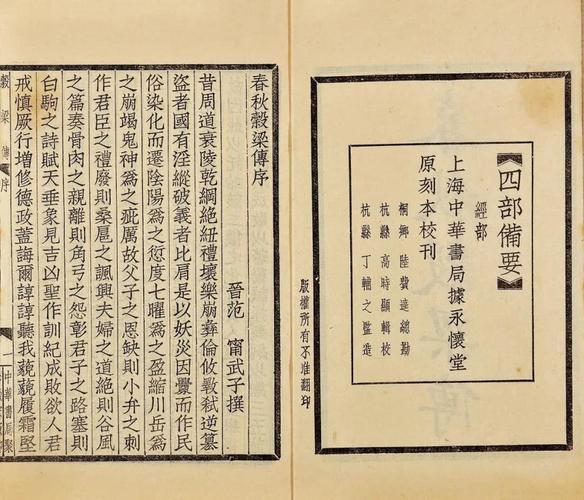 《四部備要》
經部
上海中華書局據永懷堂
原刻本校刊
桐鄉 陸費逵總勘
杭縣 高時顯輯校
杭縣 丁輔之監造
版權所有不准翻印
春秋穀梁傳序
晉范 甯武子撰
昔周道衰陵乾綱絕紐禮壞樂崩彝倫攸斁弒逆篡
盜者國有淫縱破義者比肩是以妖災因釁而作民
俗染化而遷陰陽爲之愆度七曜爲之盈縮川岳爲
之崩竭鬼神爲之疵厲故父子之恩缺則小弁之刺
作君臣之禮廢則桑扈之諷興夫婦之道絕則谷風
之篇奏骨肉之親離則角弓之怨彰君子之路塞則
白駒之詩賦天垂象見吉凶聖作訓紀成敗欲人君
戒慎厥行增修德政蓋誨爾諄諄聽我藐藐履霜堅
穀梁傳 序 一 中華書局聚